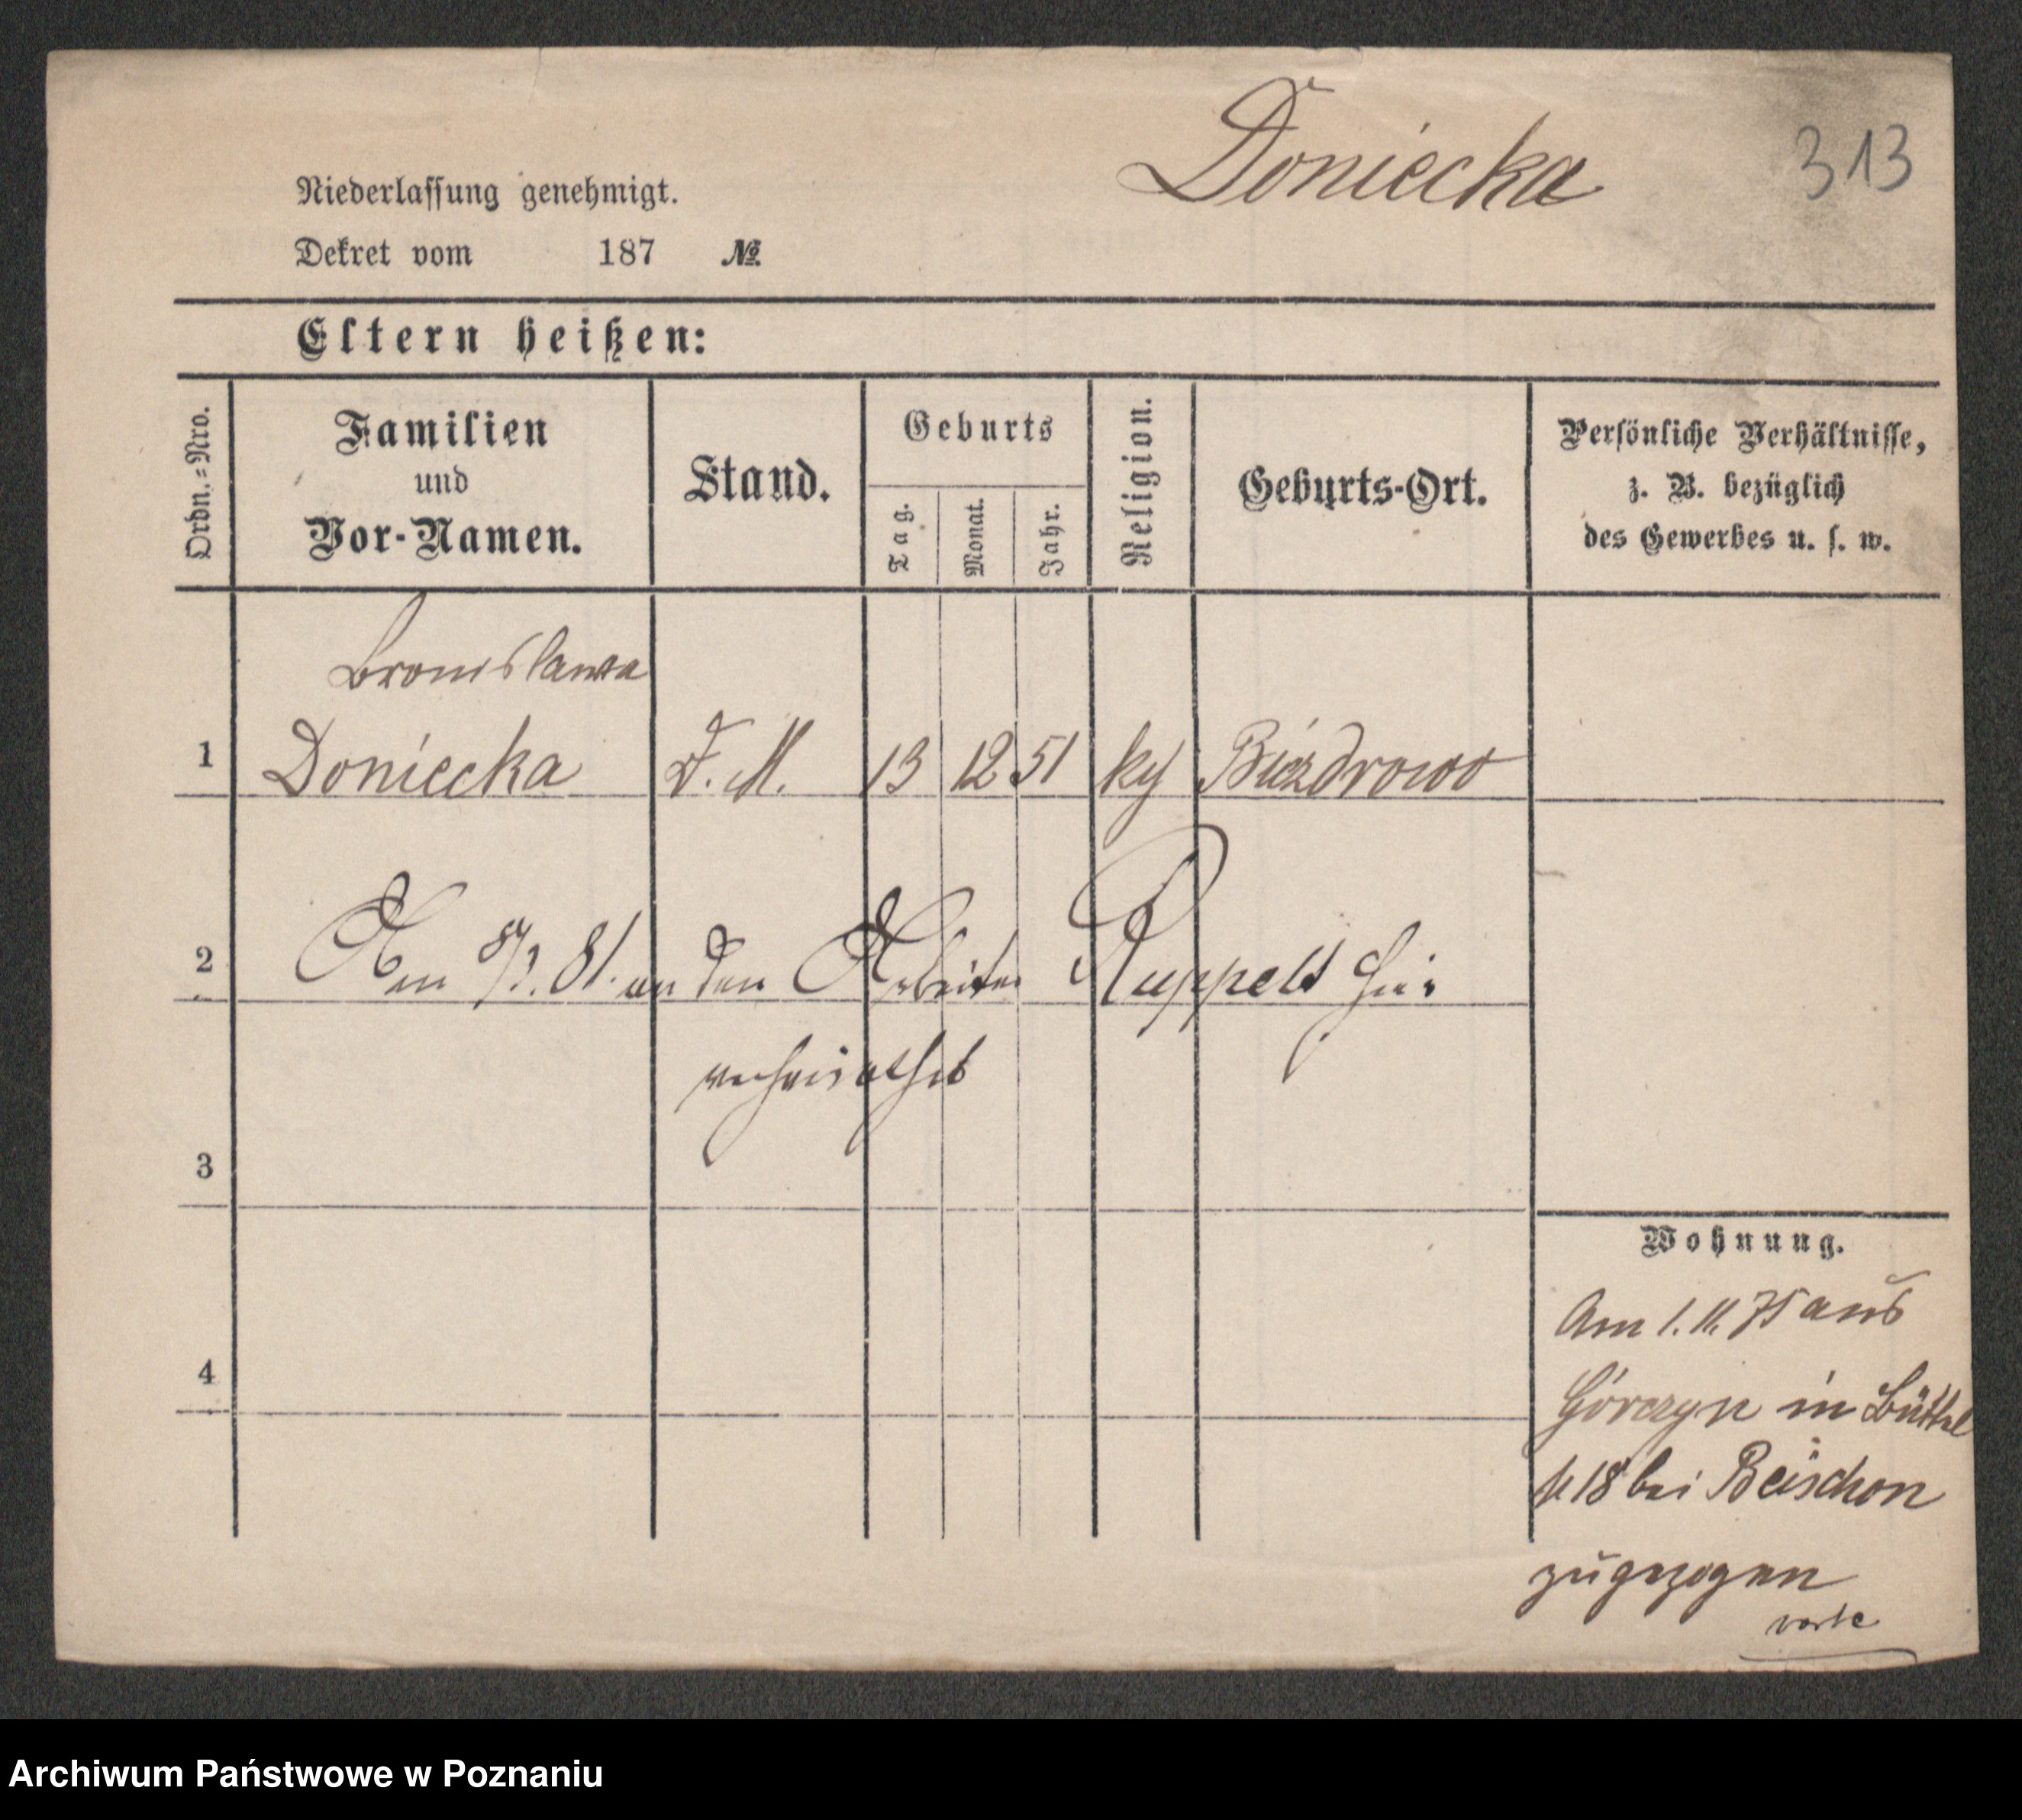 Doniecka
313
Niederlassung genehmigt.
Dekret vom 187 №
Eltern heißen:
Ordn.=Nro.
Familien
und
Vor-Namen.
Stand.
Geburts
Tag.
Monat.
Jahr.
Religion.
Geburts-Ort.
Persönliche Verhältnisse,
z. B. bezüglich
des Gewerbes u. s. w.
Bronislawa
1 Doniecka D. M. 13 12 51 kg Biezdrowo
2 Am 8/3. 81. an den Arbeiter Ruppelt hier
verheirathet
3
4
Wohnung.
Am 1. 11. 75 aus
Górczyn in Büttel
18 bei Beischon
zugezogen